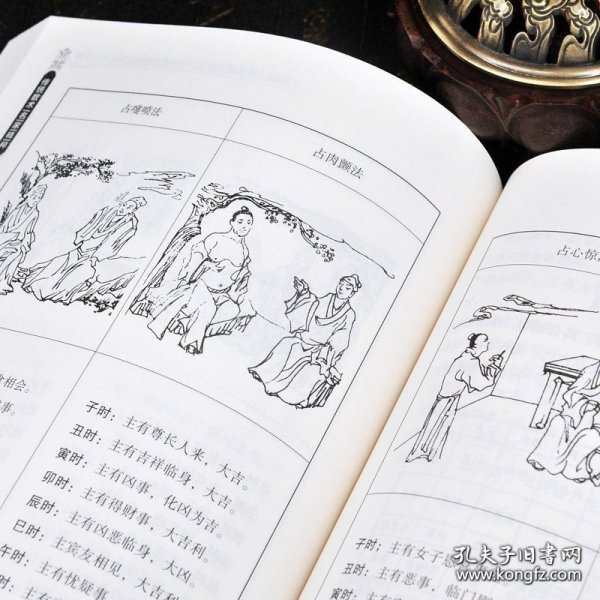 占嚏喷法
占肉颤法
会相会。
事。
子时：主有尊长人来，大吉。
丑时：主有吉祥临身，大吉。
寅时：主有凶事，化凶为吉。
卯时：主有得财事，大吉利。
辰时：主有凶恶临身，大凶。
巳时：主宾友相见，大吉
午时：主有忧疑事
占心惊
子时：主有女子
丑时：主有恶事，临门
寅时：
孔夫子旧书网
www.kongfz.com